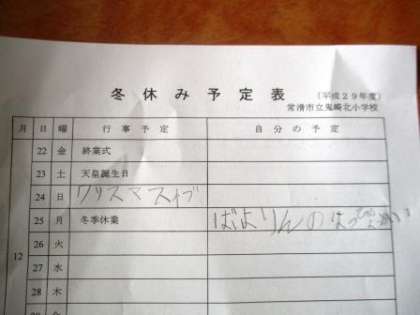 冬休み予定表
(平成29年度)
常滑市立鬼崎北小学校
月 日 曜 行事予定 自分の予定
22 金 終業式
23 土 天皇誕生日
24 日 クリスマスイブ
25 月 冬季休業 ばよりんのはっ
26 火
12
27 水
28 木